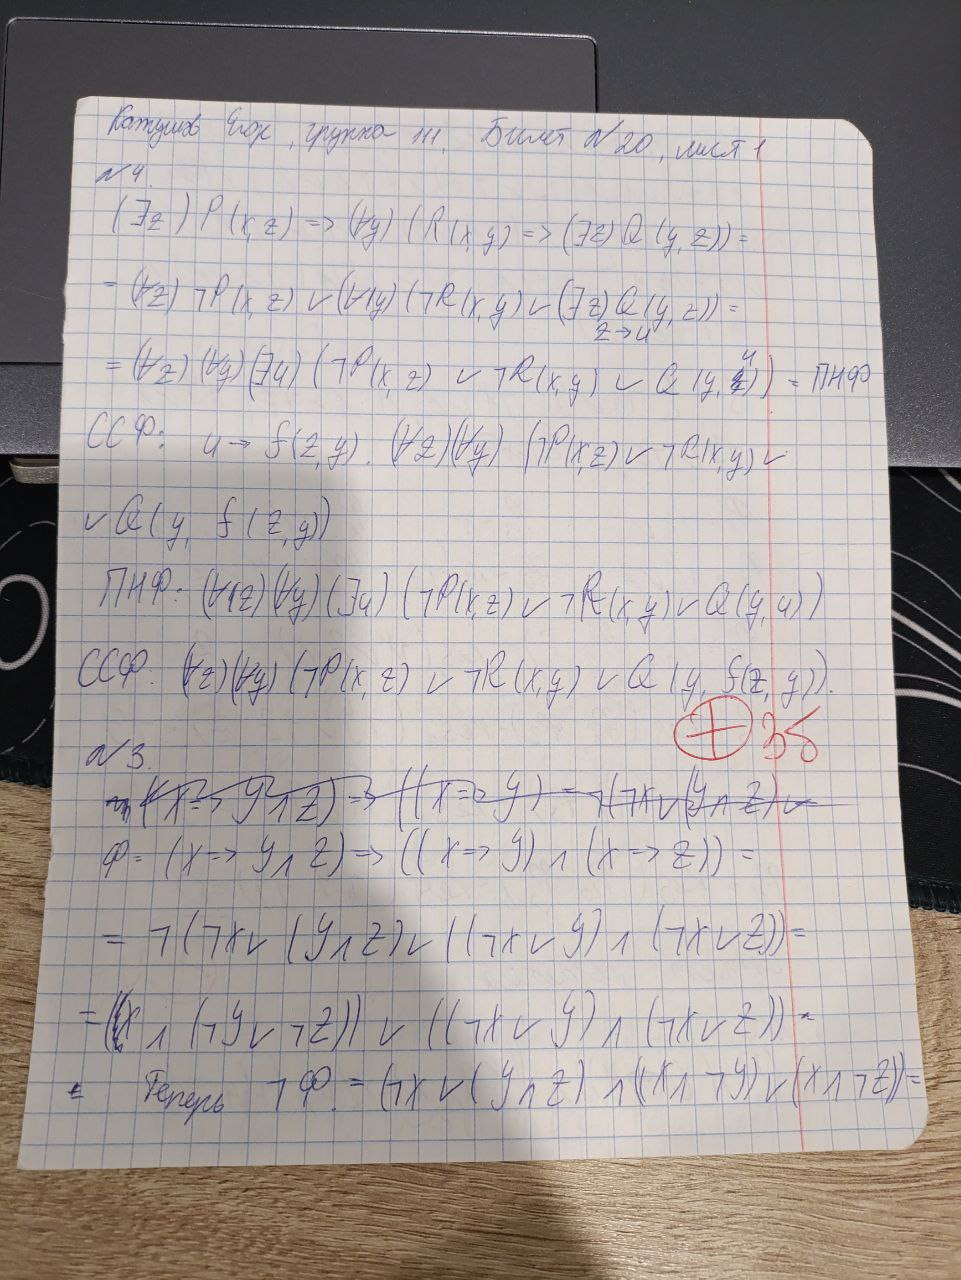 Егор, группа 111. Билет №20, лист 1
№4.
(∃z) P(x,z) => (∀y) (R(x,y) => (∃z) Q(y,z)) =
= (∀z) ¬P(x,z) ∨ (∀y) (¬R(x,y) ∨ (∃z) Q(y,z)) =
z→u
= (∀z) (∀y) (∃u) (¬P(x,z) ∨ ¬R(x,y) ∨ Q(y,u)) = ПНФ
ССФ: u → f(z,y). (∀z)(∀y) (¬P(x,z) ∨ ¬R(x,y) ∨
∨ Q(y, f(z,y))
ПНФ: (∀z)(∀y)(∃u) (¬P(x,z) ∨ ¬R(x,y) ∨ Q(y,u))
ССФ: (∀z)(∀y) (¬P(x,z) ∨ ¬R(x,y) ∨ Q(y, f(z,y)).
+ 3б
№3.
(x => y∧z) => ((x => y) = ¬(¬x ∨ (y∧z) ∨
Ф = (x => y∧z) => ((x => y) ∧ (x => z)) =
= ¬(¬x ∨ (y∧z) ∨ ((¬x ∨ y) ∧ (¬x ∨ z)) =
= (x ∧ (¬y ∨ ¬z)) ∨ ((¬x ∨ y) ∧ (¬x ∨ z)) =
Теперь ¬Ф = (¬x ∨ (y∧z) ∧ ((x∧¬y) ∨ (x∧¬z)) =